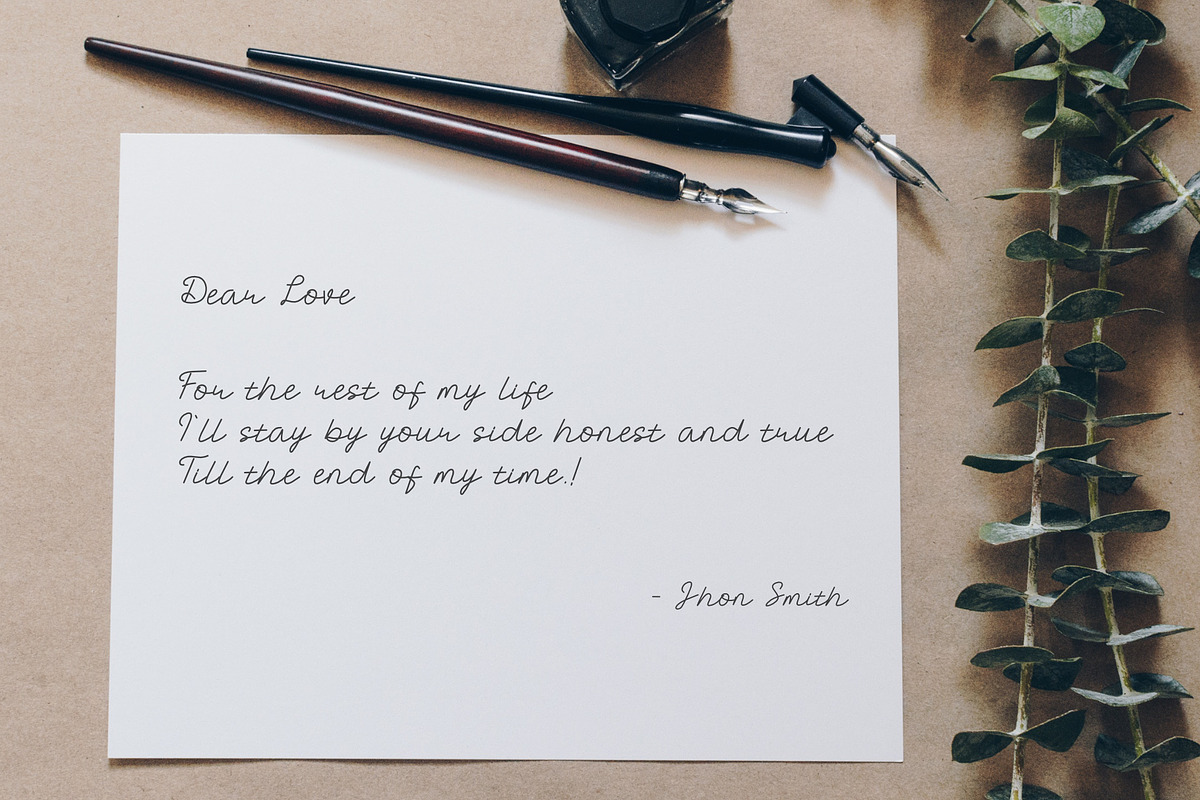 Dear Love
For the rest of my life
I'll stay by your side honest and true
Till the end of my time.!
- Jhon Smith